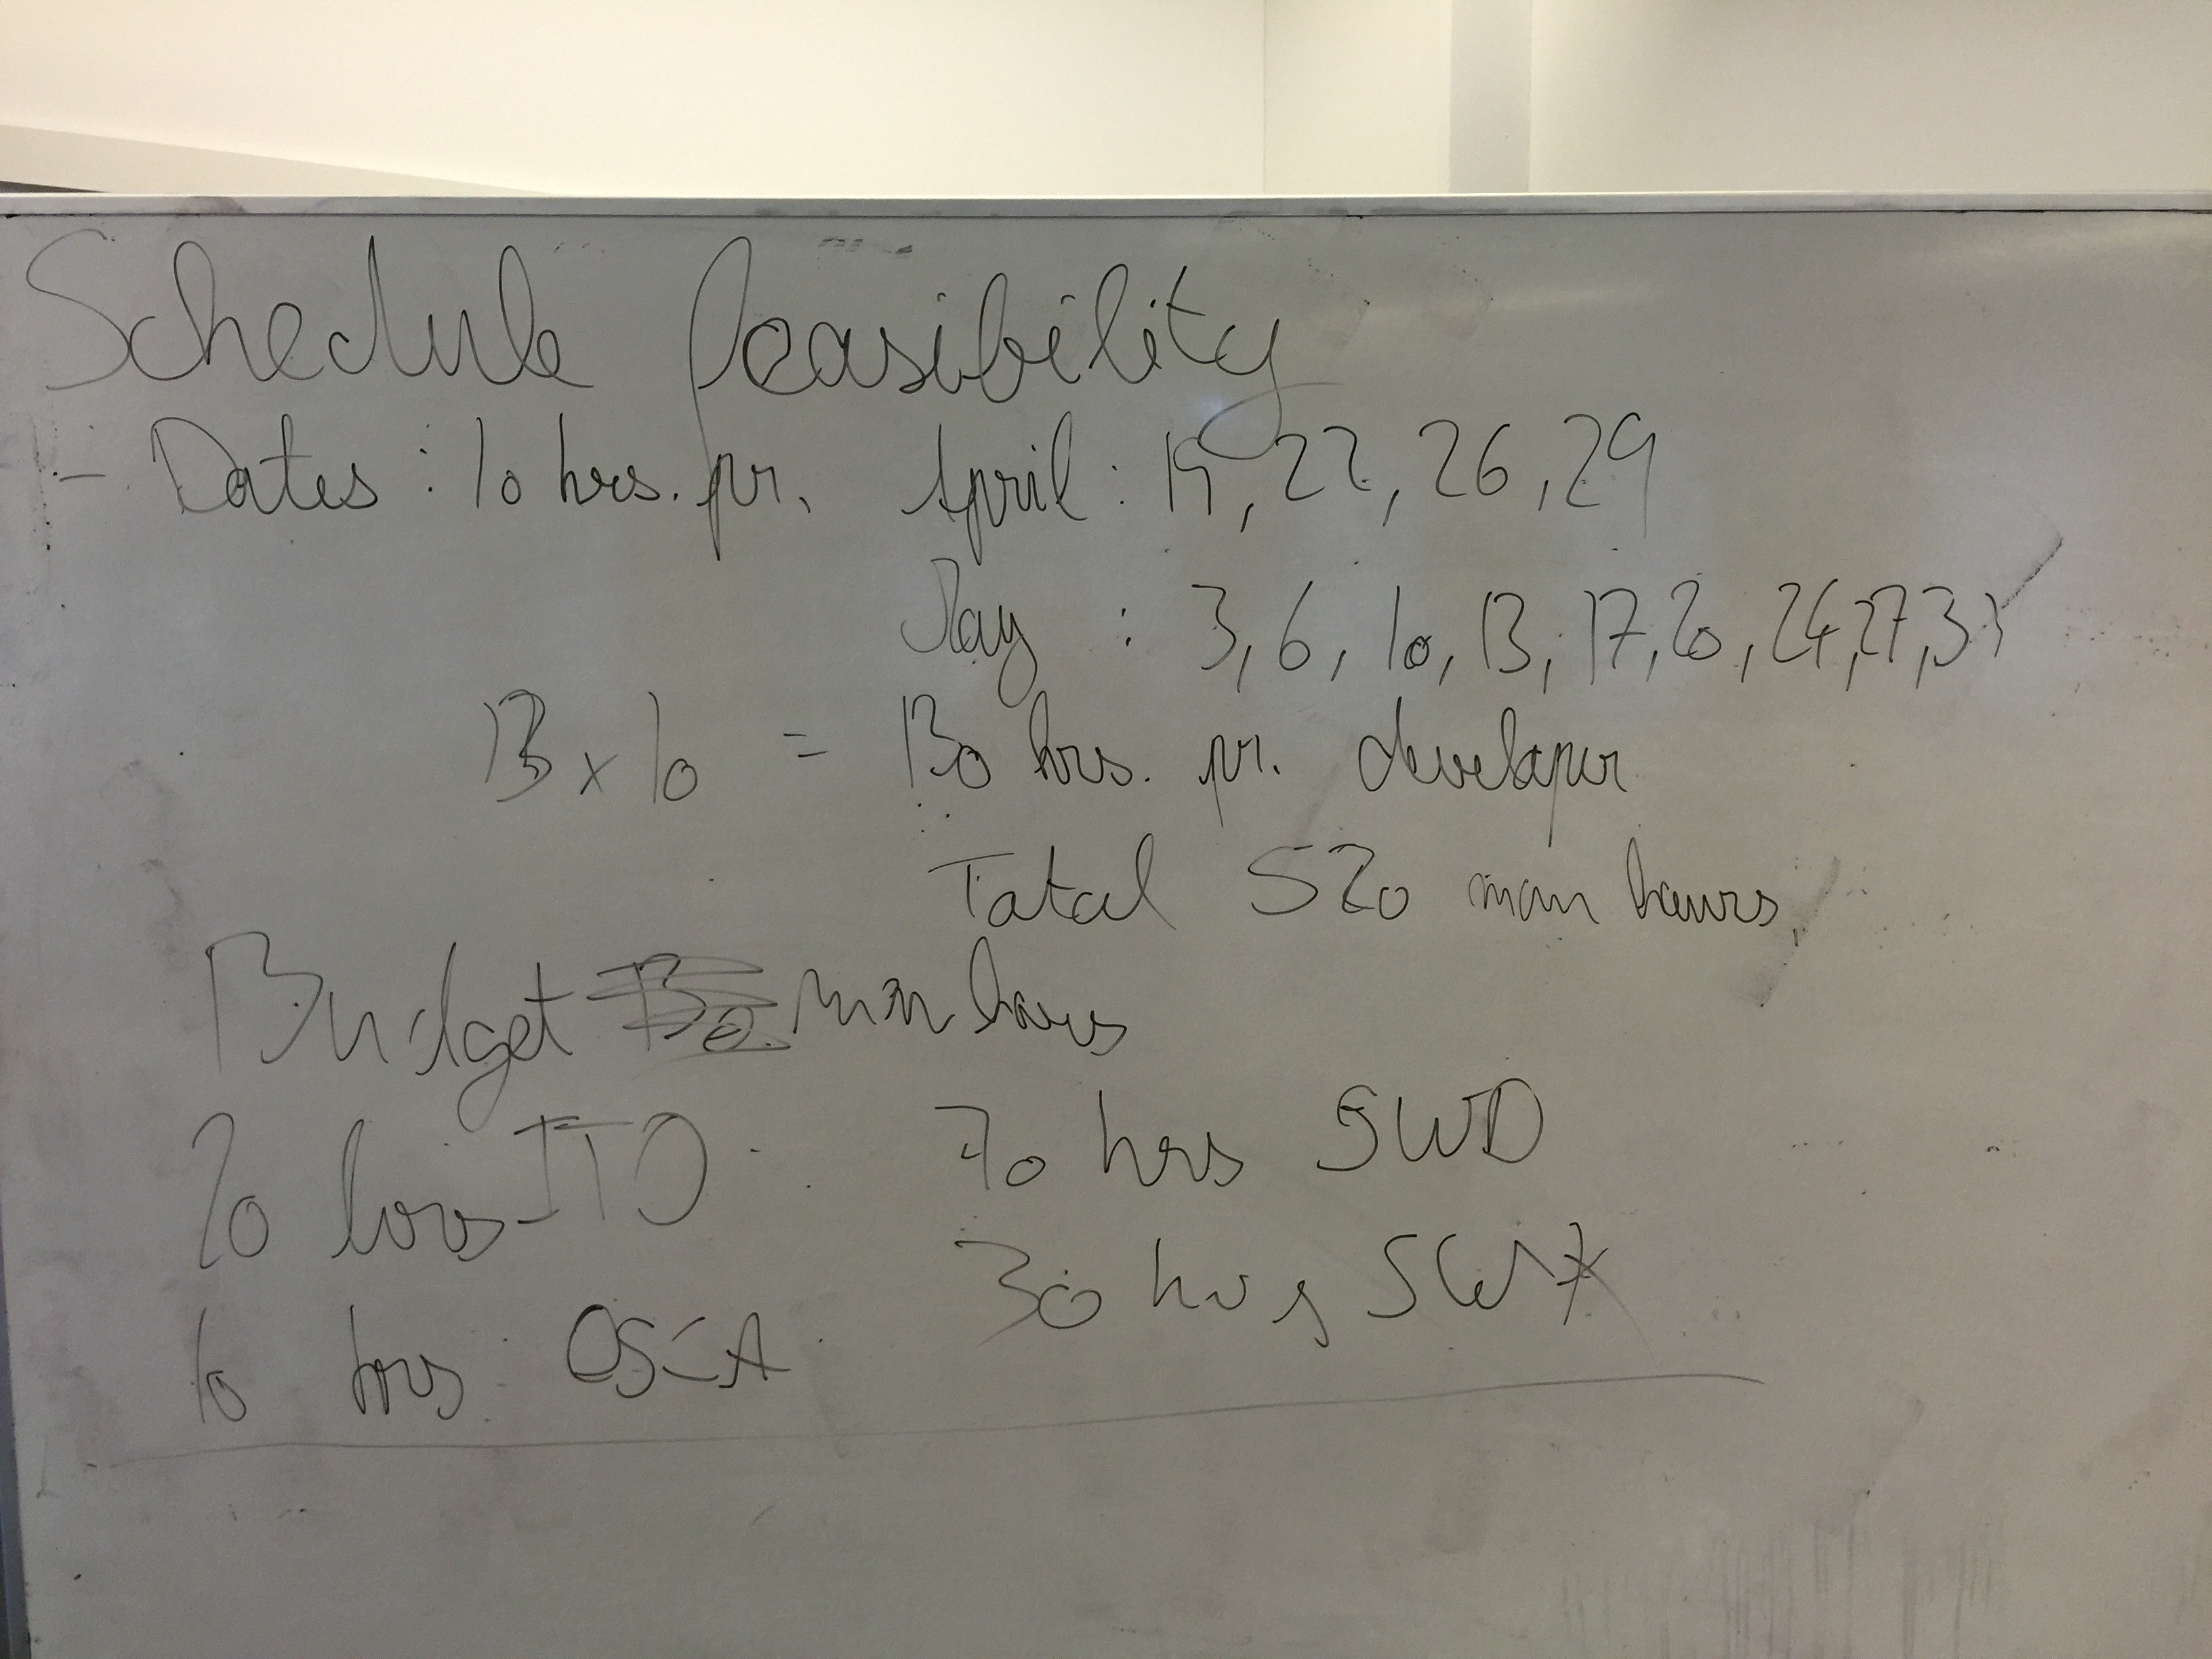 Schedule feasibility
- Dates : 10 hrs. pr. April : 19, 22, 26, 29
May : 3, 6, 10, 13, 17, 20, 24, 27, 31
13 x 10 = 130 hrs. pr. developer
Total 520 man hours
Budget man hours
20 hrs ITO 70 hrs SWD
10 hrs OSCA 30 hrs SWX